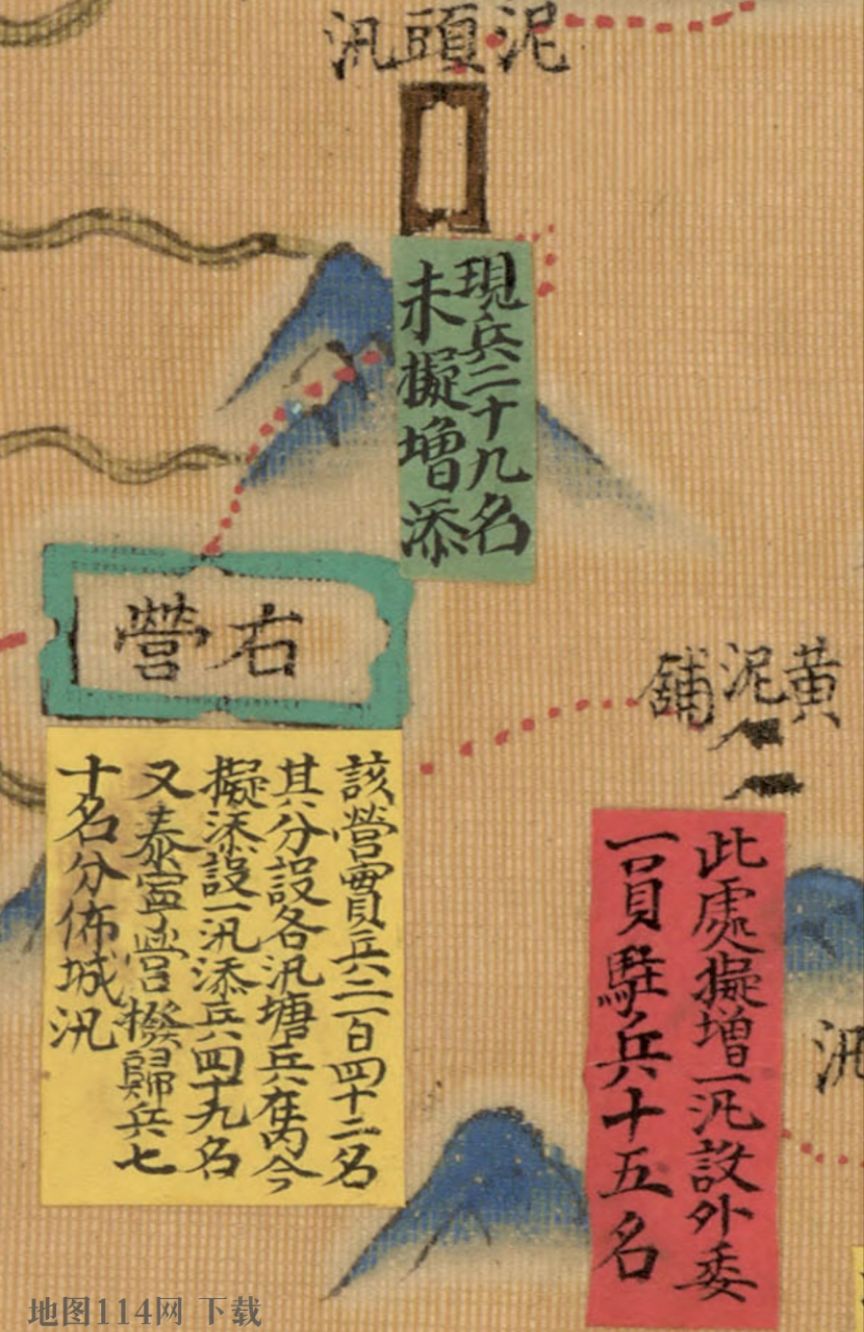 泥頭汛
現兵二十九名
未擬增添
右營
黄泥舖
該營實兵二百四十二名
其分設各汛塘兵在内今
擬添設一汛添兵四十九名
又泰寧營撥歸兵七
十名分佈城汛
此處擬增一汛設外委
一員駐兵十五名
汛
地图114网 下载